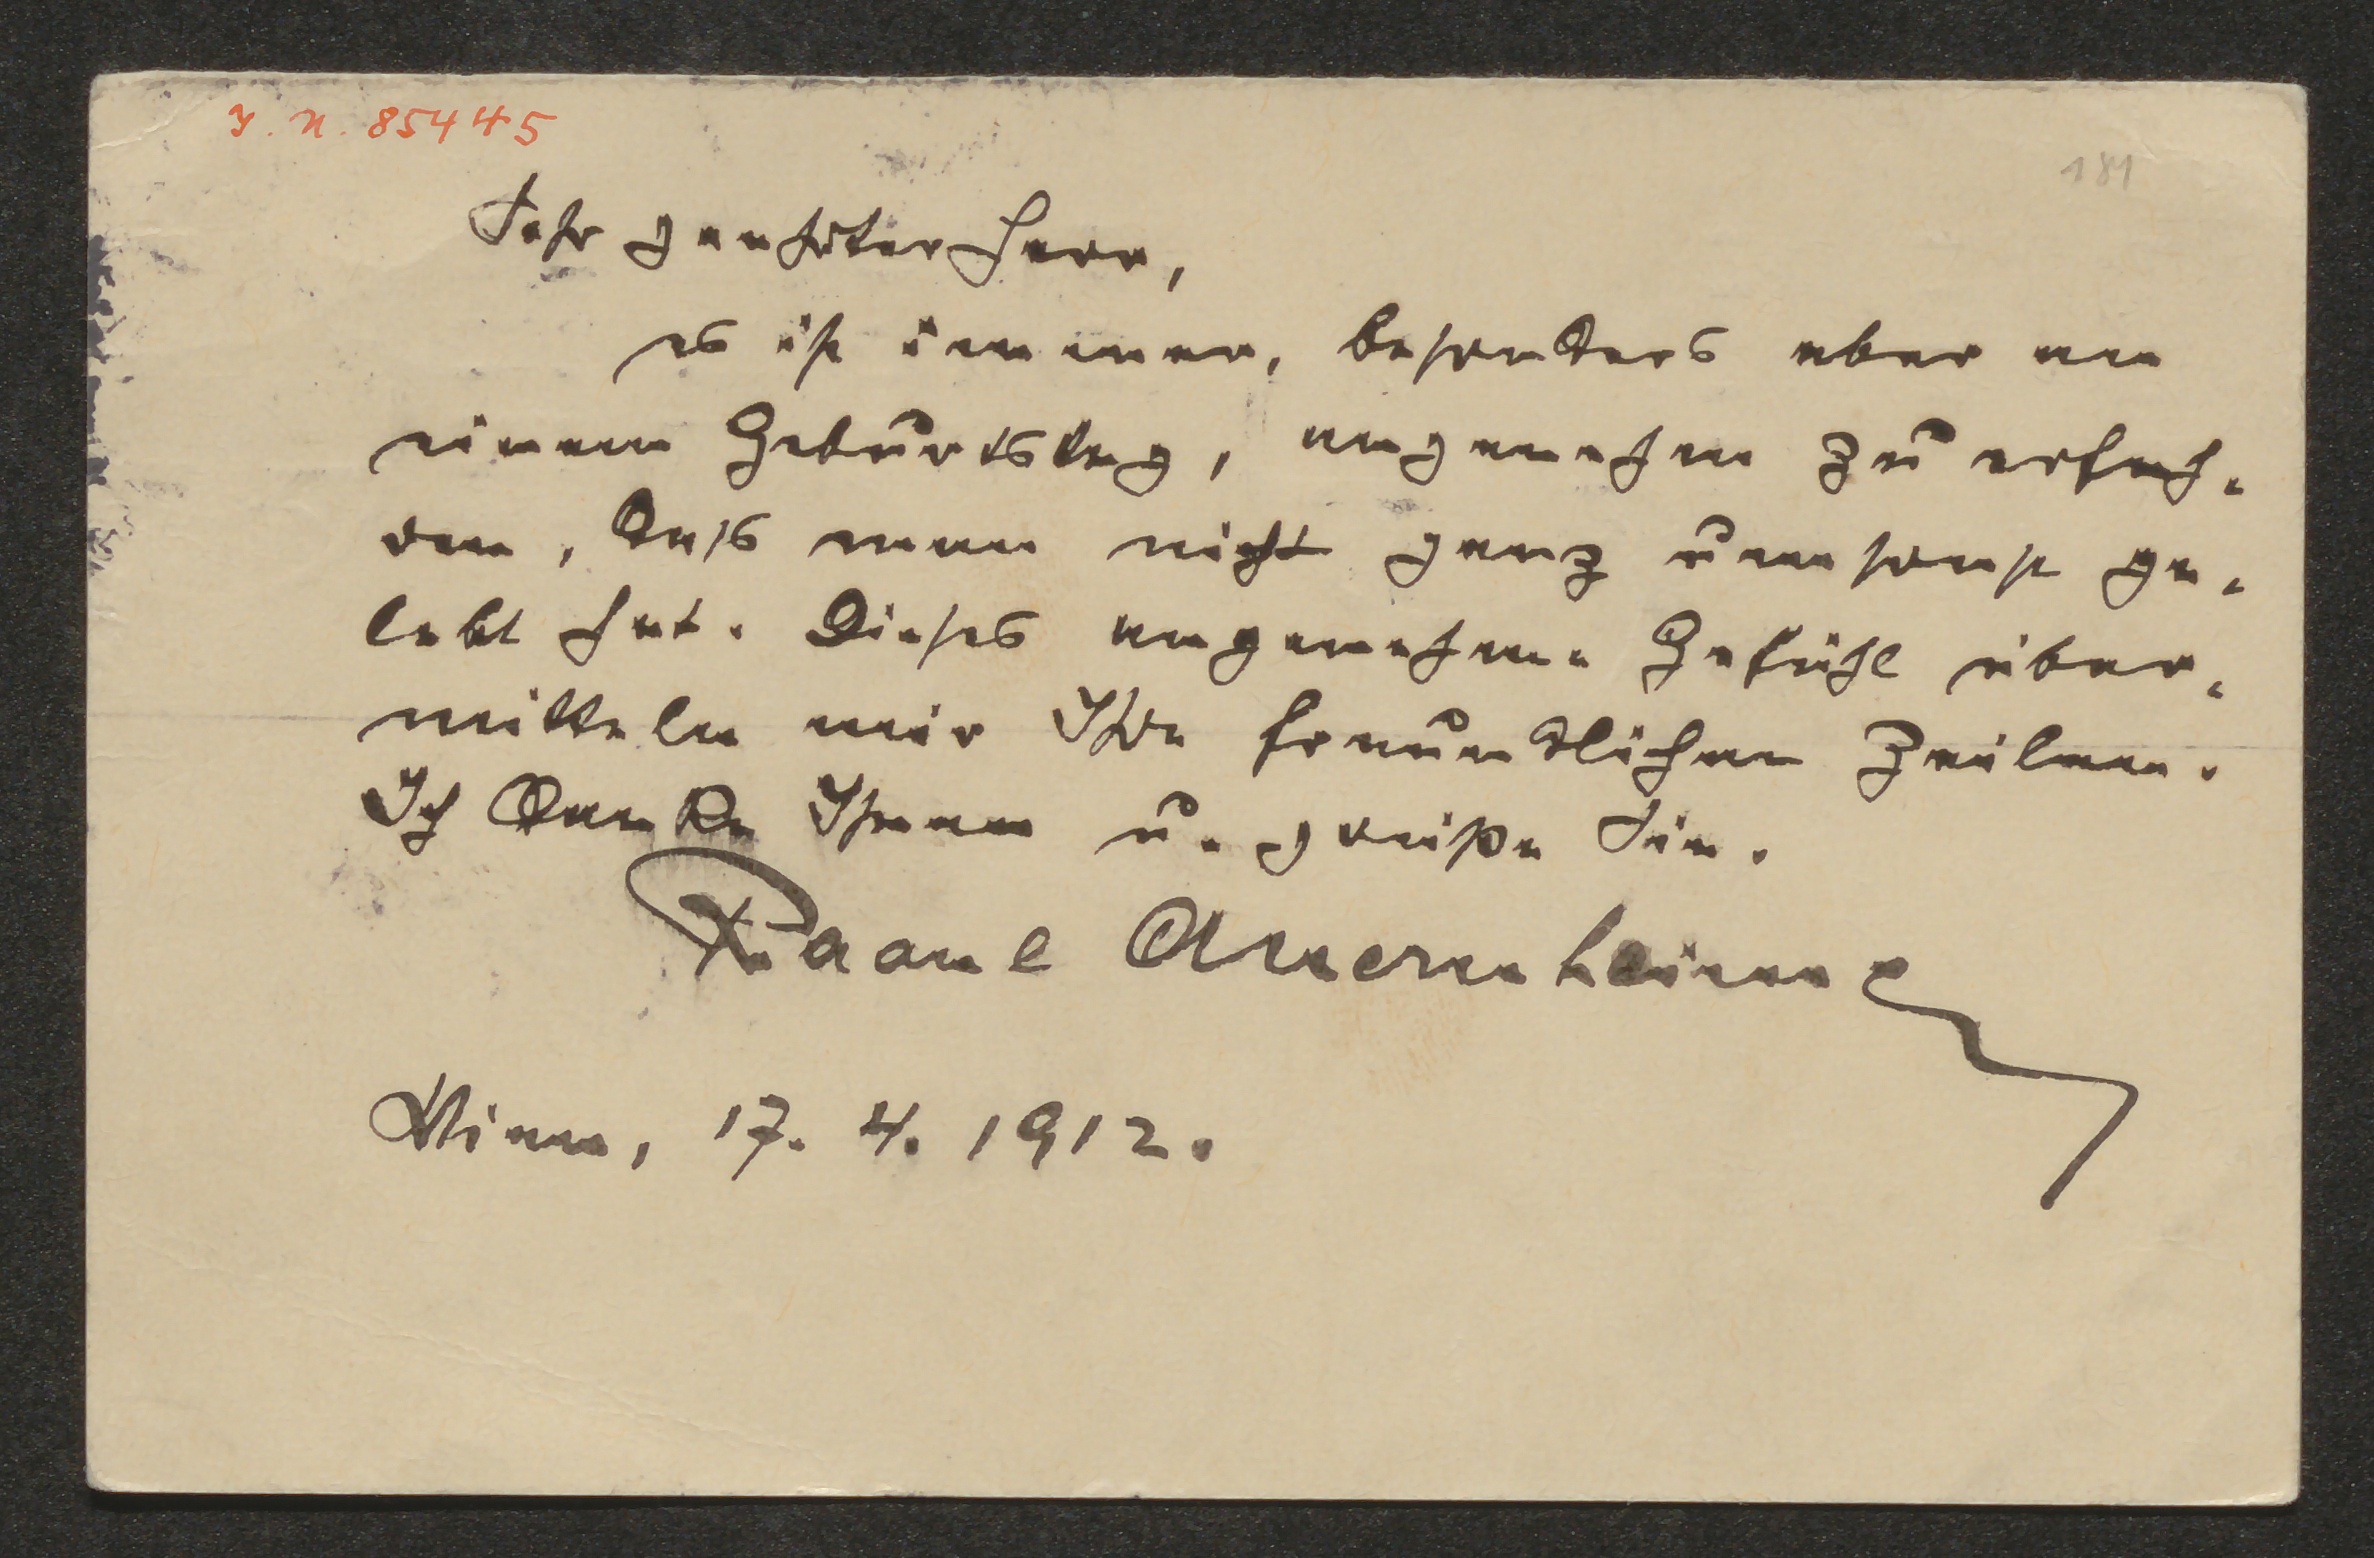 I. N. 85445
181
Sehr geehrter Herr,
es ist immer, besonders aber an
einem Geburtstag, angenehm zu erfah-
ren, dass man nicht ganz umsonst ge-
lebt hat. Dieses angenehme Gefühl über-
mitteln mir Ihre freundlichen Zeilen.
Ich danke Ihnen u. grüße Sie.
Raoul Auernheimer
Wien, 17. 4. 1912.